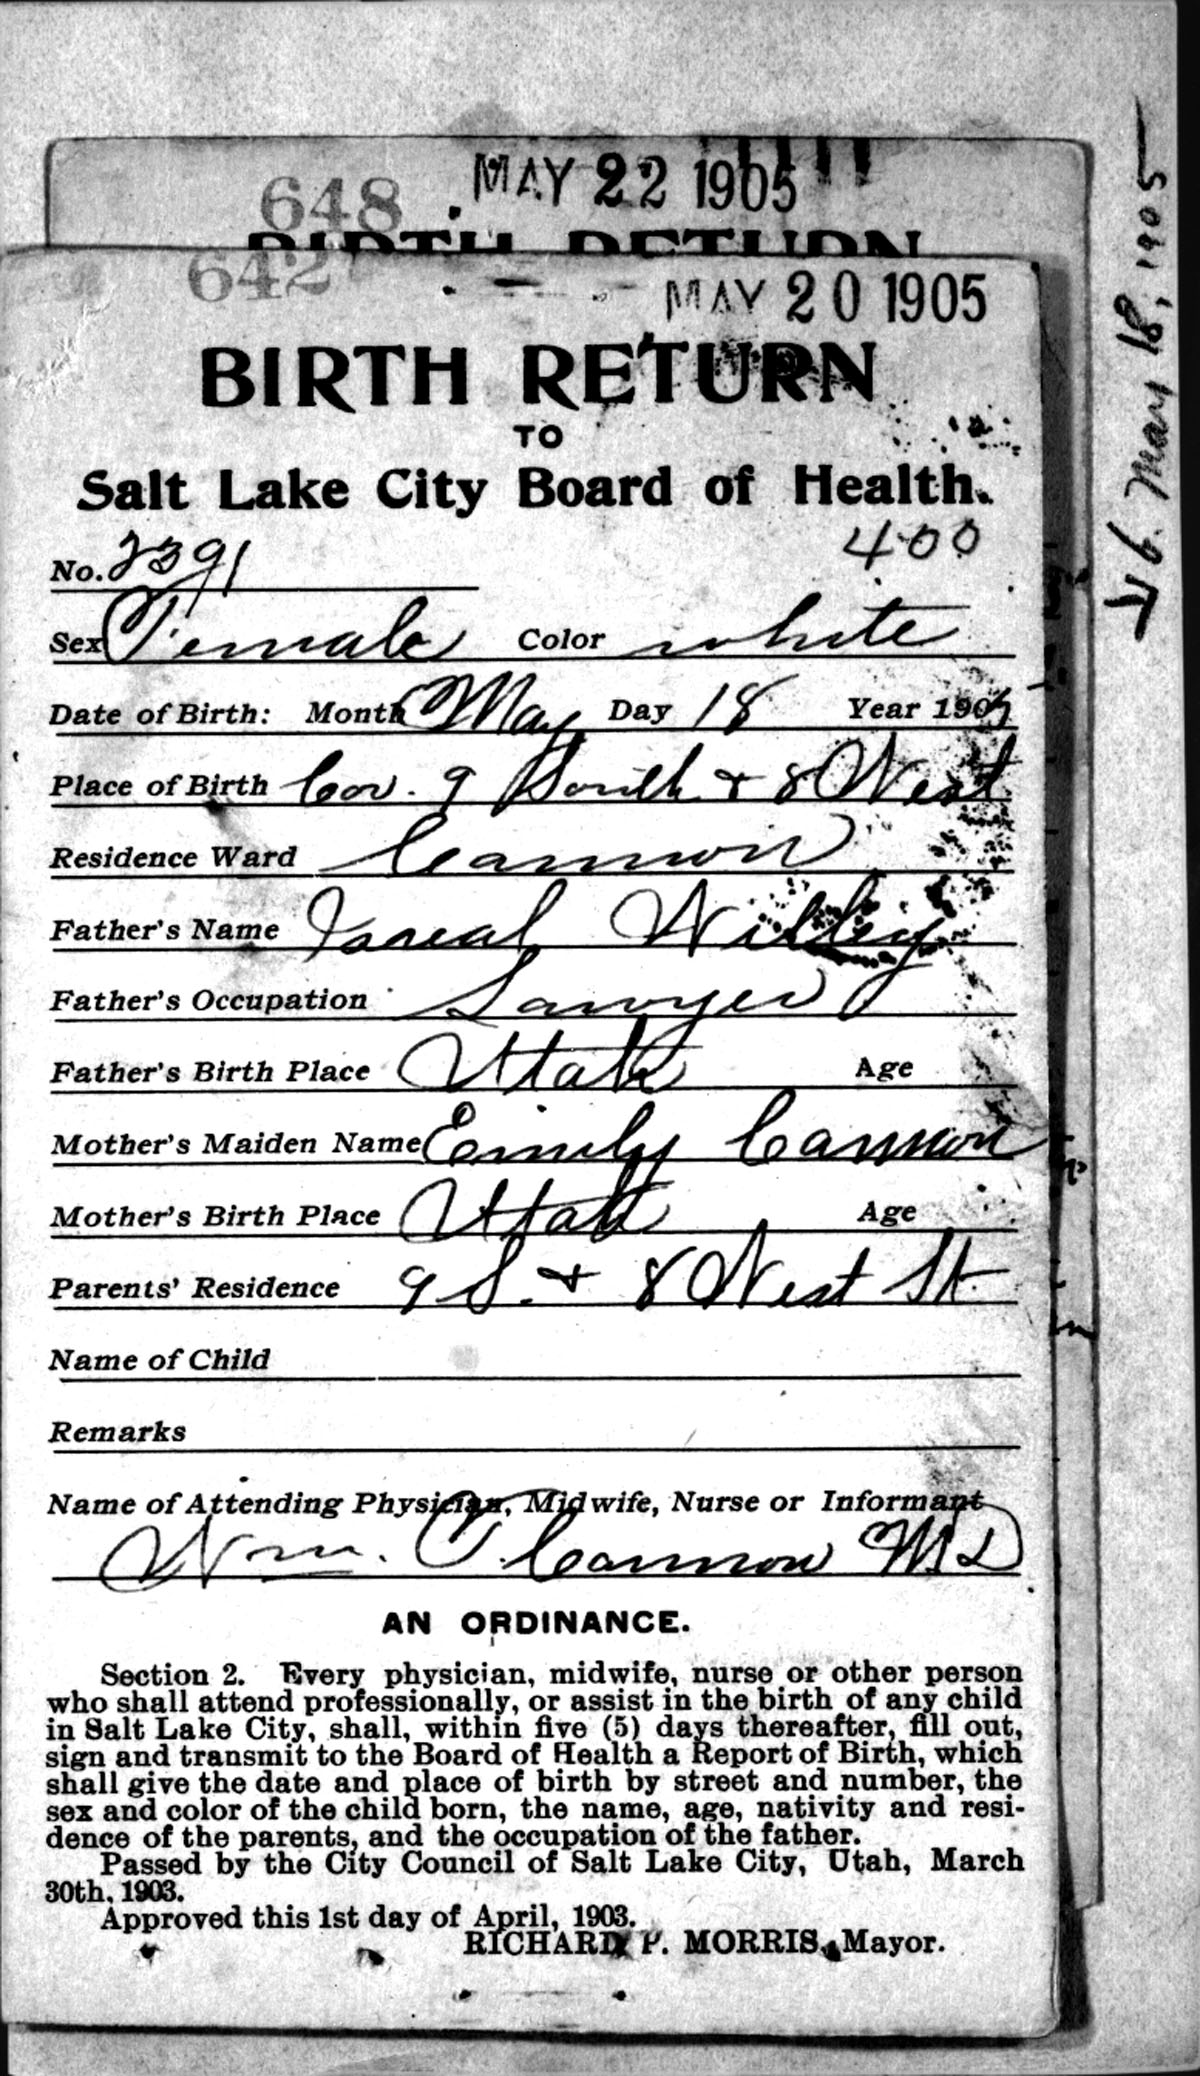 648 MAY 22 1905
BIRTH RETURN
642 MAY 20 1905
BIRTH RETURN
TO
Salt Lake City Board of Health.
No. 2391 400
Sex Female Color white
Date of Birth: Month May Day 18 Year 1905
Place of Birth Cor. 9 South & 8 West
Residence Ward Cannon
Father's Name Isreal Willey
Father's Occupation Sawyer
Father's Birth Place Utah Age
Mother's Maiden Name Emily Cannon
Mother's Birth Place Utah Age
Parents' Residence 9 S. & 8 West St.
Name of Child
Remarks
Name of Attending Physician, Midwife, Nurse or Informant
Wm. T. Cannon MD
AN ORDINANCE.
Section 2. Every physician, midwife, nurse or other person
who shall attend professionally, or assist in the birth of any child
in Salt Lake City, shall, within five (5) days thereafter, fill out,
sign and transmit to the Board of Health a Report of Birth, which
shall give the date and place of birth by street and number, the
sex and color of the child born, the name, age, nativity and resi-
dence of the parents, and the occupation of the father.
Passed by the City Council of Salt Lake City, Utah, March
30th, 1903.
Approved this 1st day of April, 1903.
RICHARD P. MORRIS, Mayor.
b. May 18, 1905